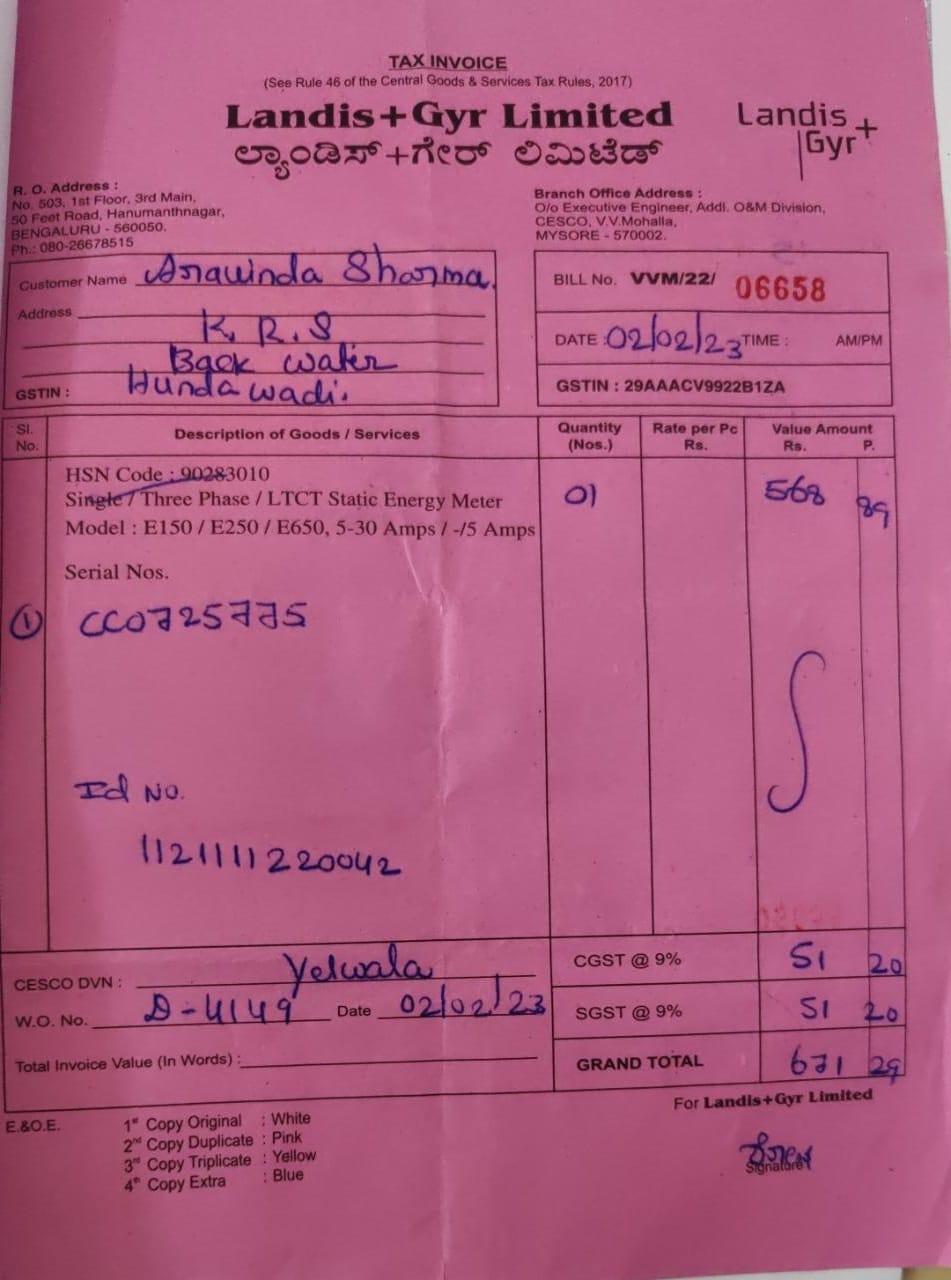 TAX INVOICE
(See Rule 46 of the Central Goods & Services Tax Rules, 2017)
Landis+Gyr Limited
ಲ್ಯಾಂಡಿಸ್+ಗೇರ್ ಲಿಮಿಟೆಡ್
Landis
Gyr+
R. O. Address :
No. 503, 1st Floor, 3rd Main,
50 Feet Road, Hanumanthnagar,
BENGALURU - 560050.
Ph.: 080-26678515
Branch Office Address :
O/o Executive Engineer, Addl. O&M Division,
CESCO, V.V.Mohalla,
MYSORE - 570002.
Customer Name Aravinda Sharma
Address
K. R. S
Back water
GSTIN : Hundawadi.
BILL No. VVM/22/ 06658
DATE : 02/02/23 TIME : AM/PM
GSTIN : 29AAACV9922B1ZA
Sl. No. Description of Goods / Services Quantity (Nos.) Rate per Pc Rs. Value Amount Rs. P.
HSN Code : 90283010
Single / Three Phase / LTCT Static Energy Meter 01 568 89
Model : E150 / E250 / E650, 5-30 Amps / -/5 Amps
Serial Nos.
1 CC0725775
Id No.
1121111220042
CESCO DVN : Yelwala
W.O. No. D-4149 Date 02/02/23
Total Invoice Value (In Words) :
CGST @ 9% 51 20
SGST @ 9% 51 20
GRAND TOTAL 671 29
For Landis+Gyr Limited
E.&O.E.
1st Copy Original : White
2nd Copy Duplicate : Pink
3rd Copy Triplicate : Yellow
4th Copy Extra : Blue
Signature